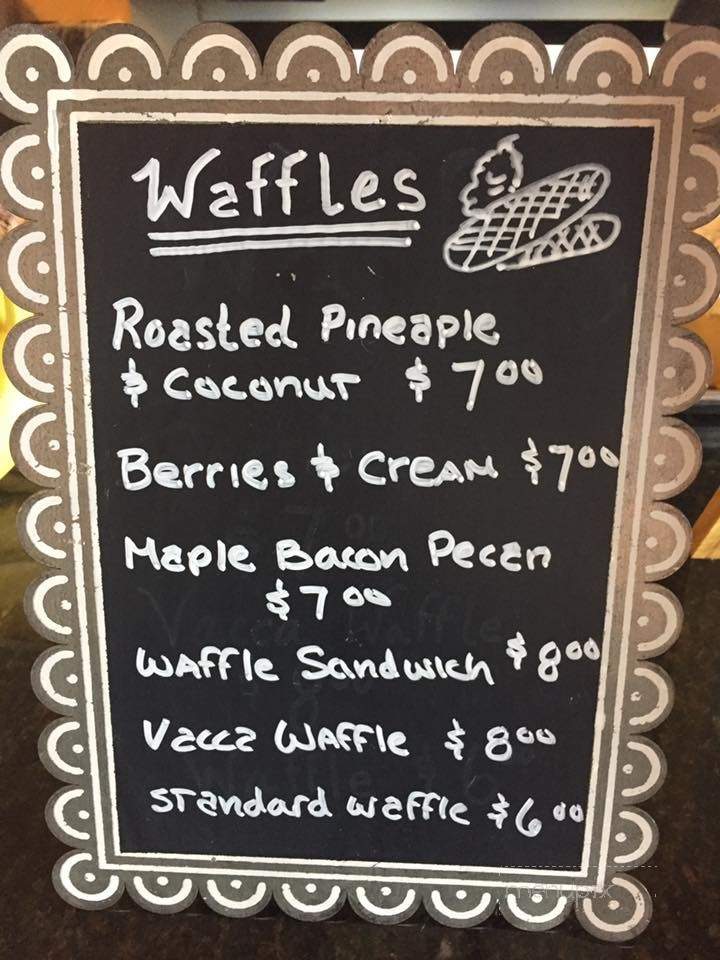 Waffles
Roasted Pineaple
& Coconut $7.00
Berries & Cream $7.00
Maple Bacon Pecan
$7.00
Waffle Sandwich $8.00
Vacca Waffle $8.00
Standard waffle $6.00
menupix